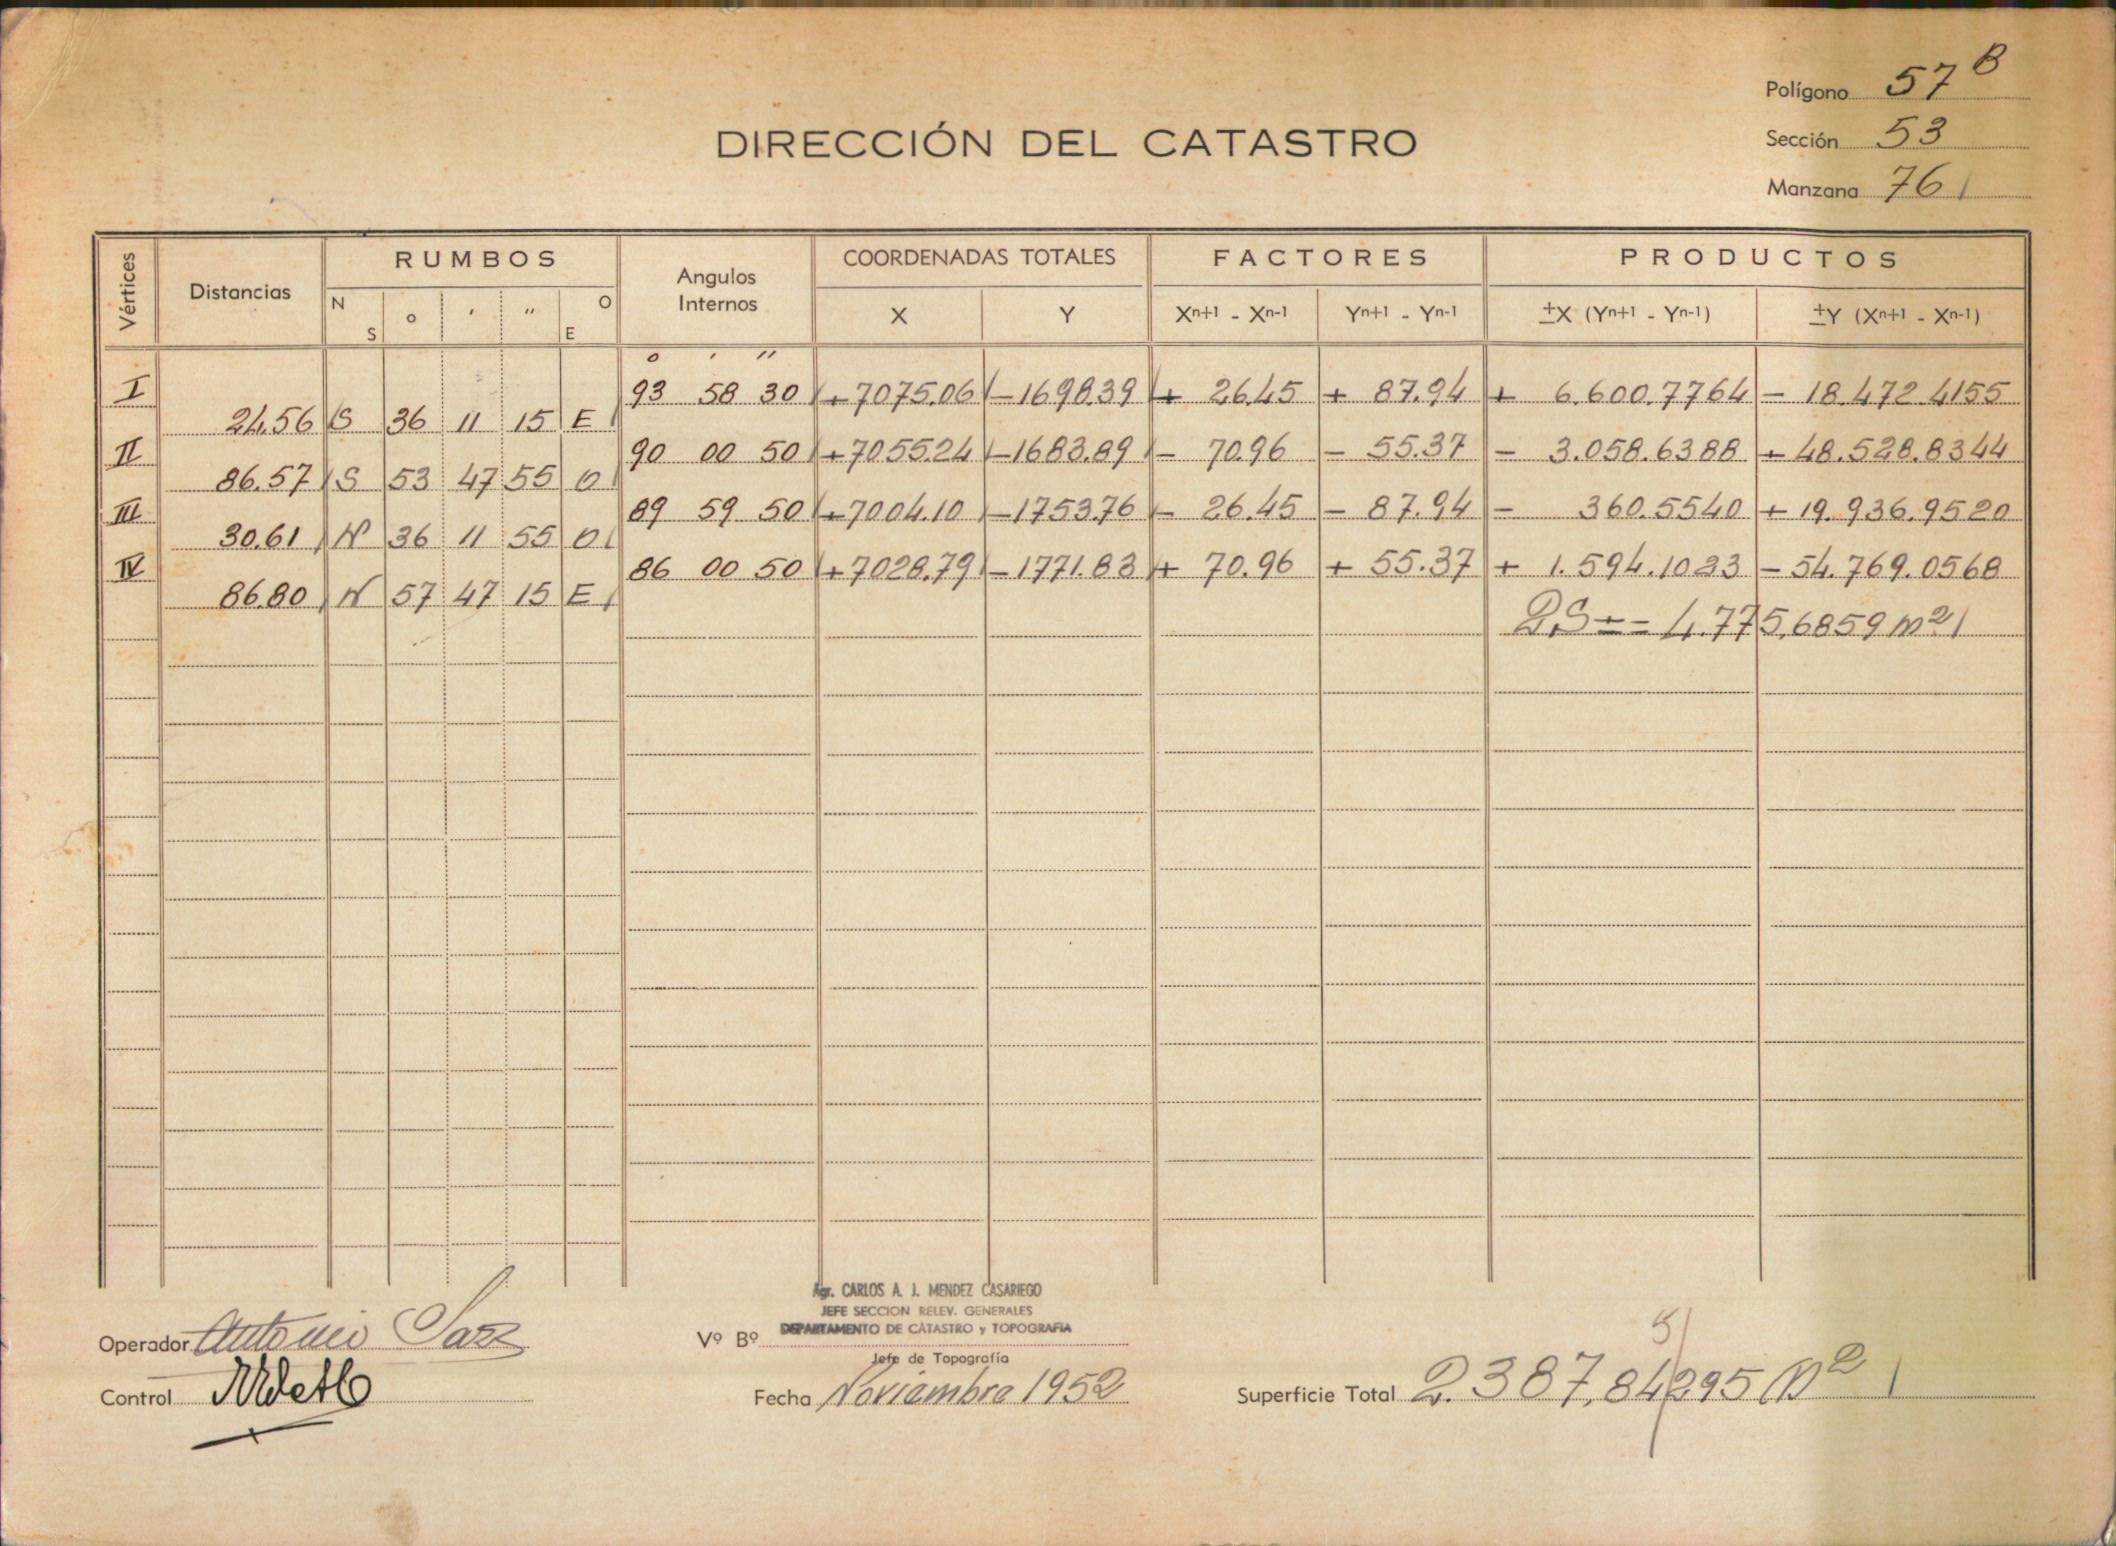 Polígono 57 B
DIRECCIÓN DEL CATASTRO
Sección 53
Manzana 761
Vértices Distancias RUMBOS Angulos Internos COORDENADAS TOTALES FACTORES PRODUCTOS
N S o ′ ″ O E X Y Xn+1 - Xn-1 Yn+1 - Yn-1 ±X (Yn+1 - Yn-1) ±Y (Xn+1 - Xn-1)
o ′ ″
I 93 58 30 +7075.06 -1698.39 + 26.45 + 87.94 + 6.600.7764 - 18.472.4155
24.56 S 36 11 15 E
II 90 00 50 +7055.24 -1683.89 - 70.96 - 55.37 - 3.058.6388 + 48.528.8344
86.57 S 53 47 55 O
III 89 59 50 +7004.10 -1753.76 - 26.45 - 87.94 - 360.5540 + 19.936.9520
30.61 N 36 11 55 O
IV 86 00 50 +7028.79 -1771.83 + 70.96 + 55.37 + 1.594.1023 - 54.769.0568
86.80 N 57 47 15 E
2S = 4.775,6859 m2
Agr. CARLOS A. J. MENDEZ CASARIEGO
JEFE SECCION RELEV. GENERALES
DEPARTAMENTO DE CATASTRO y TOPOGRAFIA
Operador Antonio
Vº Bº
Jefe de Topografía
Control
Fecha Noviembre 1952
5
Superficie Total 2.387,84295 m2